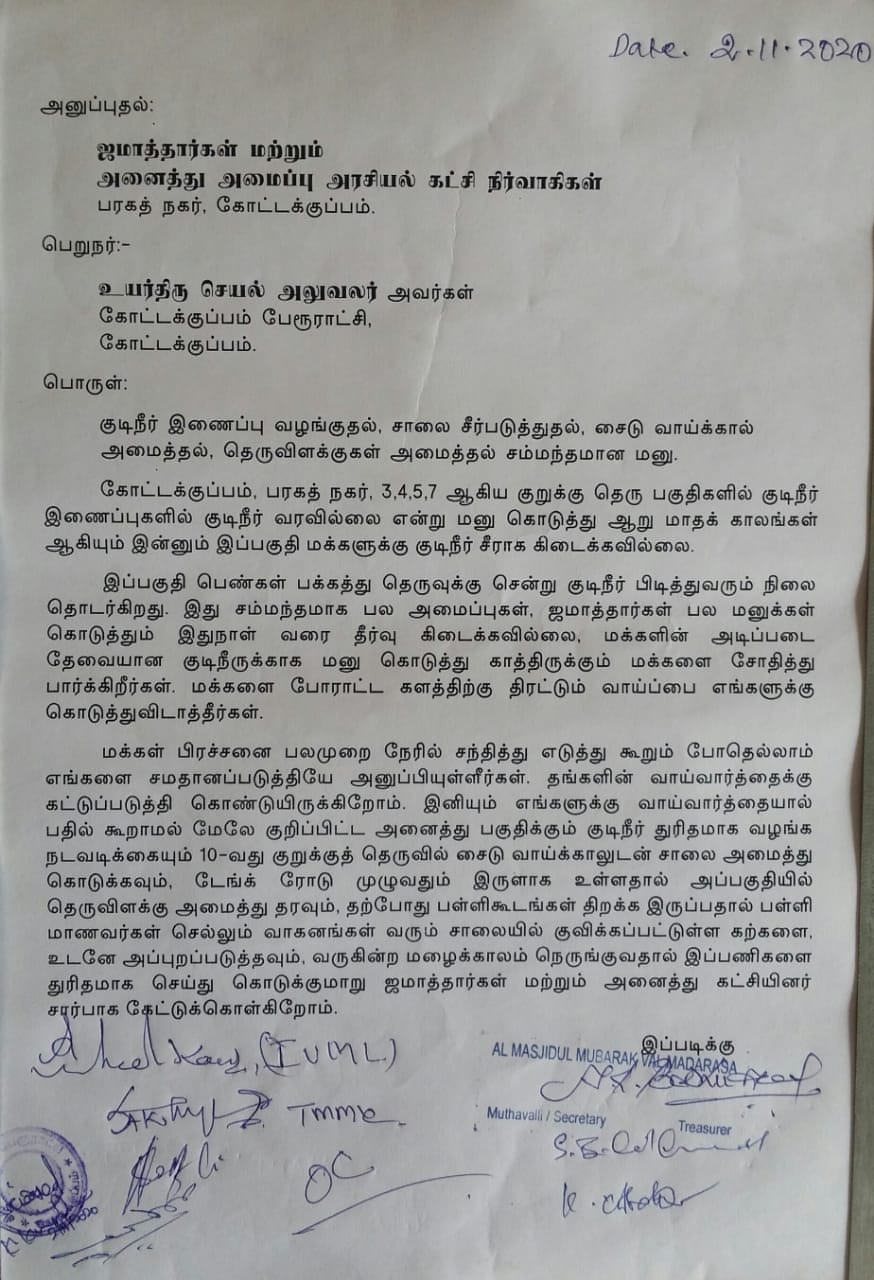 Date. 2.11.2020
அனுப்புதல்:
ஜமாத்தார்கள் மற்றும்
அனைத்து அமைப்பு அரசியல் கட்சி நிர்வாகிகள்
பரகத் நகர், கோட்டக்குப்பம்.
பெறுநர்:-
உயர்திரு செயல் அலுவலர் அவர்கள்
கோட்டக்குப்பம் பேரூராட்சி,
கோட்டக்குப்பம்.
பொருள்:
குடிநீர் இணைப்பு வழங்குதல், சாலை சீர்படுத்துதல், சைடு வாய்க்கால்
அமைத்தல், தெருவிளக்குகள் அமைத்தல் சம்மந்தமான மனு.
கோட்டக்குப்பம், பரகத் நகர், 3,4,5,7 ஆகிய குறுக்கு தெரு பகுதிகளில் குடிநீர்
இணைப்புகளில் குடிநீர் வரவில்லை என்று மனு கொடுத்து ஆறு மாதக் காலங்கள்
ஆகியும் இன்னும் இப்பகுதி மக்களுக்கு குடிநீர் சீராக கிடைக்கவில்லை.
இப்பகுதி பெண்கள் பக்கத்து தெருவுக்கு சென்று குடிநீர் பிடித்துவரும் நிலை
தொடர்கிறது. இது சம்மந்தமாக பல அமைப்புகள், ஜமாத்தார்கள் பல மனுக்கள்
கொடுத்தும் இதுநாள் வரை தீர்வு கிடைக்கவில்லை, மக்களின் அடிப்படை
தேவையான குடிநீருக்காக மனு கொடுத்து காத்திருக்கும் மக்களை சோதித்து
பார்க்கிறீர்கள். மக்களை போராட்ட களத்திற்கு திரட்டும் வாய்ப்பை எங்களுக்கு
கொடுத்துவிடாத்தீர்கள்.
மக்கள் பிரச்சனை பலமுறை நேரில் சந்தித்து எடுத்து கூறும் போதெல்லாம்
எங்களை சமதானப்படுத்தியே அனுப்பியுள்ளீர்கள். தங்களின் வாய்வார்த்தைக்கு
கட்டுப்படுத்தி கொண்டுயிருக்கிறோம். இனியும் எங்களுக்கு வாய்வார்த்தையால்
பதில் கூறாமல் மேலே குறிப்பிட்ட அனைத்து பகுதிக்கும் குடிநீர் துரிதமாக வழங்க
நடவடிக்கையும் 10-வது குறுக்குத் தெருவில் சைடு வாய்க்காலுடன் சாலை அமைத்து
கொடுக்கவும், டேங்க் ரோடு முழுவதும் இருளாக உள்ளதால் அப்பகுதியில்
தெருவிளக்கு அமைத்து தரவும், தற்போது பள்ளிகூடங்கள் திறக்க இருப்பதால் பள்ளி
மாணவர்கள் செல்லும் வாகனங்கள் வரும் சாலையில் குவிக்கப்பட்டுள்ள கற்களை,
உடனே அப்புறப்படுத்தவும், வருகின்ற மழைக்காலம் நெருங்குவதால் இப்பணிகளை
துரிதமாக செய்து கொடுக்குமாறு ஜமாத்தார்கள் மற்றும் அனைத்து கட்சியினர்
சார்பாக கேட்டுக்கொள்கிறோம்.
இப்படிக்கு
(IUML)
AL MASJIDUL MUBARAK VAL MADARASA
TMMK
Muthavalli / Secretary
Treasurer
OC